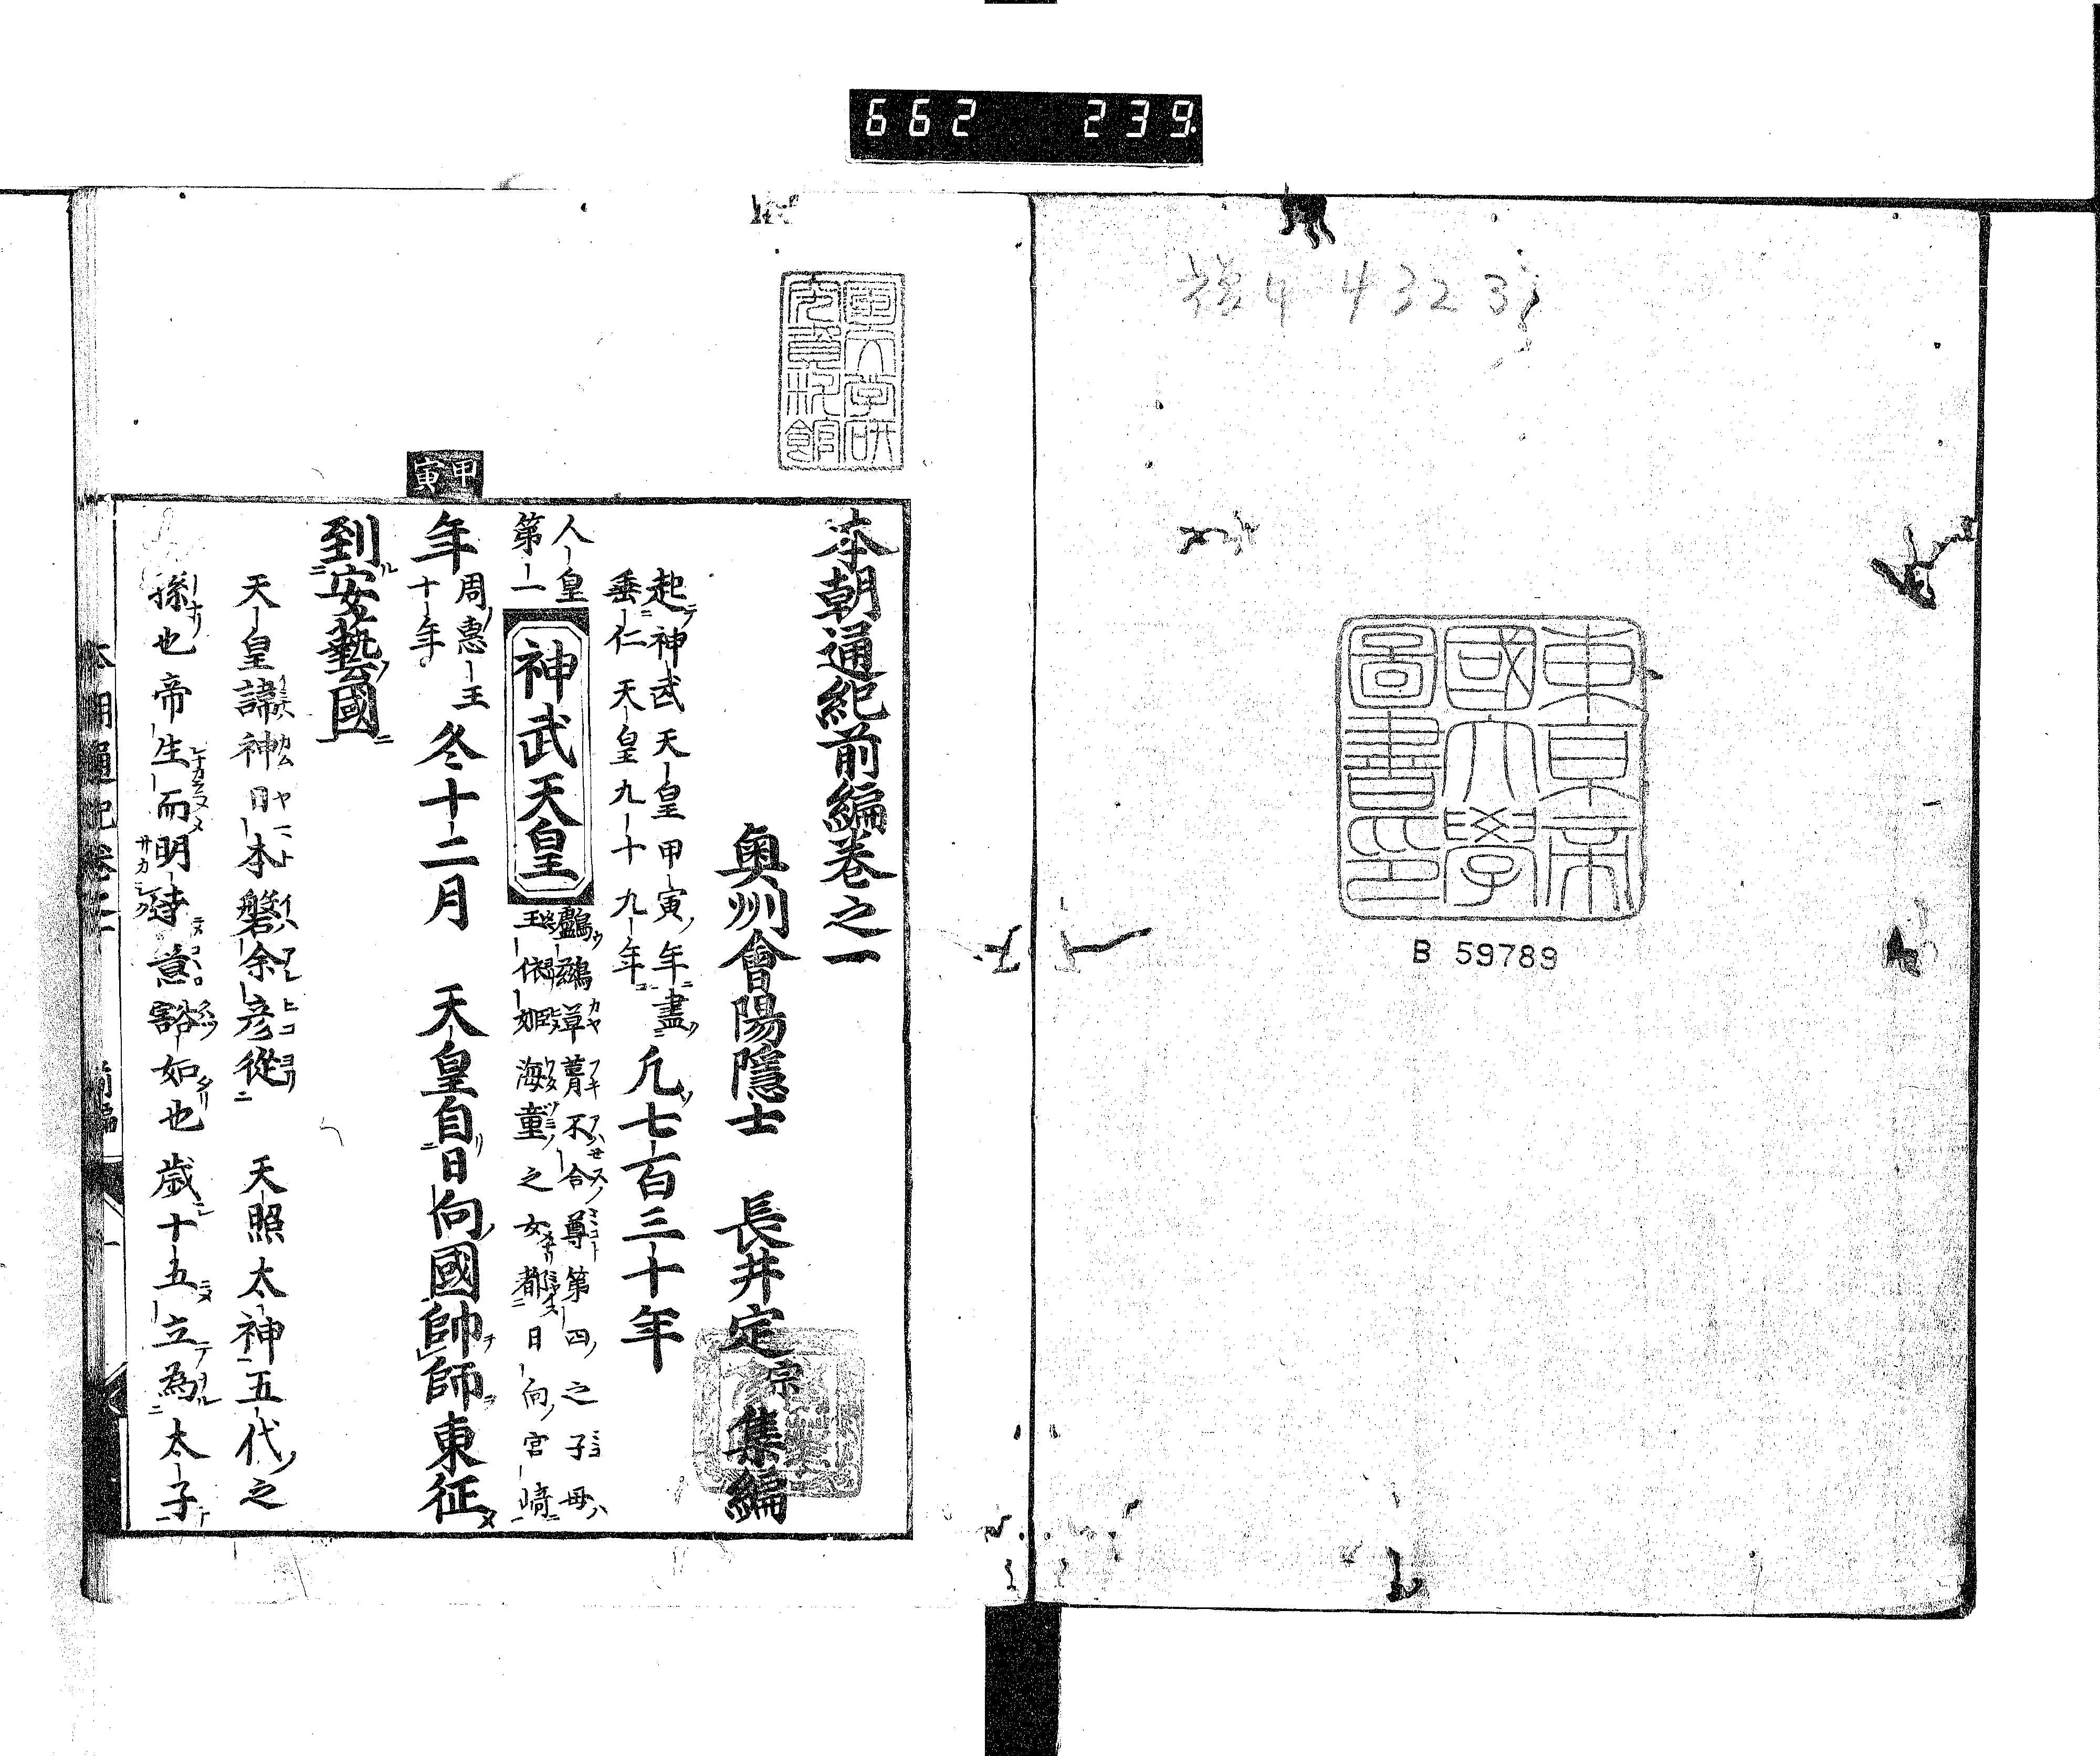 662 239
4323
東京帝
國大學
圖書印
B 59789
國文學研
究資料館
本朝通紀前編巻之一
奥州會陽隱士 長井定宗集編
起神武天皇甲寅年盡
垂仁天皇九十九年
凡七百三十年
人皇
第一
神武天皇
鸕鷀草葺不合尊第四之子母
玉依姬海童之女都日向宮﨑
甲寅
年
周惠王
十年
冬十二月 天皇自日向國帥師東征
到安藝國
天皇諱神日本磐余彦從 天照太神五代之
孫也帝生而明達意豁如也歲十五立為太子